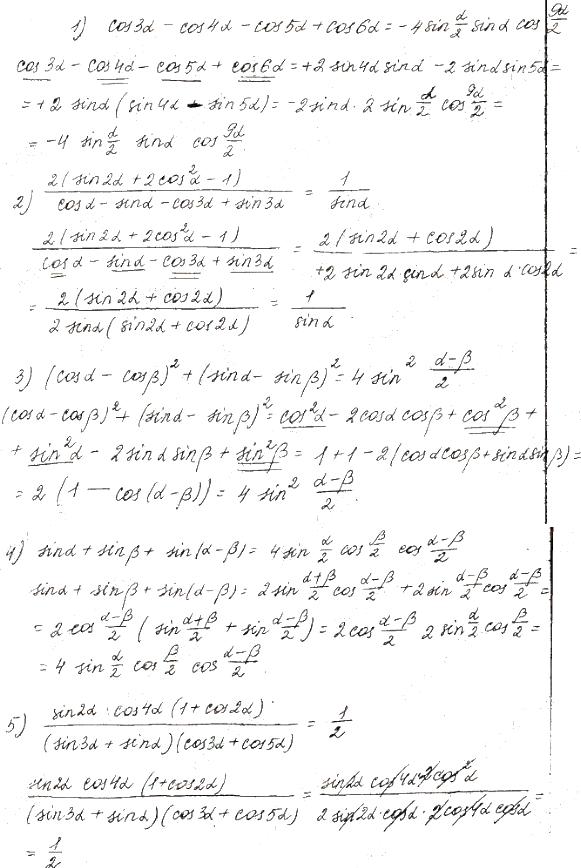 1) cos3α − cos4α − cos5α + cos6α = −4 sin α/2 sinα cos 9α/2
cos3α − cos4α − cos5α + cos6α = +2 sin4α sinα − 2 sinα sin5α =
= +2 sinα (sin4α − sin5α) = −2 sinα · 2 sin α/2 cos 9α/2 =
= −4 sin α/2 sinα cos 9α/2.
2) 2(sin2α + 2cos²α − 1) / (cosα − sinα − cos3α + sin3α) = 1/sinα.
2(sin2α + 2cos²α − 1) / (cosα − sinα − cos3α + sin3α) = 2(sin2α + cos2α) / (+2 sin2α sinα + 2 sinα · cos2α) =
= 2(sin2α + cos2α) / (2 sinα (sin2α + cos2α)) = 1/sinα.
3) (cosα − cosβ)² + (sinα − sinβ)² = 4 sin² (α−β)/2
(cosα − cosβ)² + (sinα − sinβ)² = cos²α − 2cosα cosβ + cos²β +
+ sin²α − 2 sinα sinβ + sin²β = 1 + 1 − 2(cosα cosβ + sinα sinβ) =
= 2 (1 − cos(α−β)) = 4 sin² (α−β)/2.
4) sinα + sinβ + sin(α−β) = 4 sin α/2 cos β/2 cos (α−β)/2
sinα + sinβ + sin(α−β) = 2 sin (α+β)/2 cos (α−β)/2 + 2 sin (α−β)/2 cos (α−β)/2 =
= 2 cos (α−β)/2 (sin (α+β)/2 + sin (α−β)/2) = 2 cos (α−β)/2 2 sin α/2 cos β/2 =
= 4 sin α/2 cos β/2 cos (α−β)/2
5) sin2α · cos4α (1 + cos2α) / ((sin3α + sinα)(cos3α + cos5α)) = 1/2
sin2α cos4α (1 + cos2α) / ((sin3α + sinα)(cos3α + cos5α)) = sin2α cos4α 2 cos²α / (2 sin2α · cosα · 2 cos4α cosα) =
= 1/2